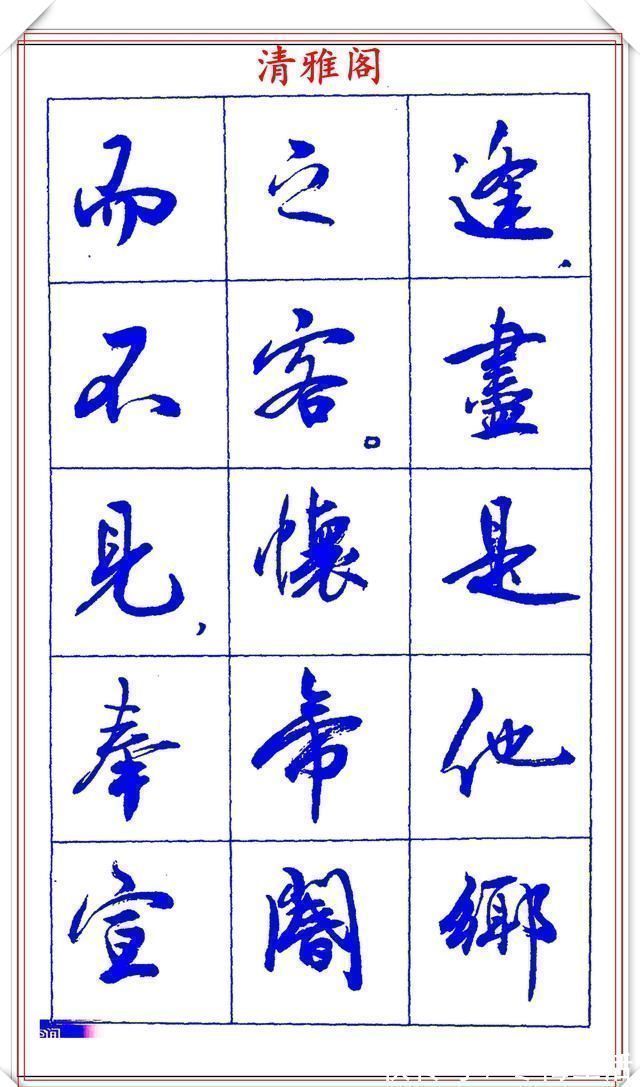 清雅阁
逢，盡是他鄉
之客。懷帝閽
而不見，奉宣